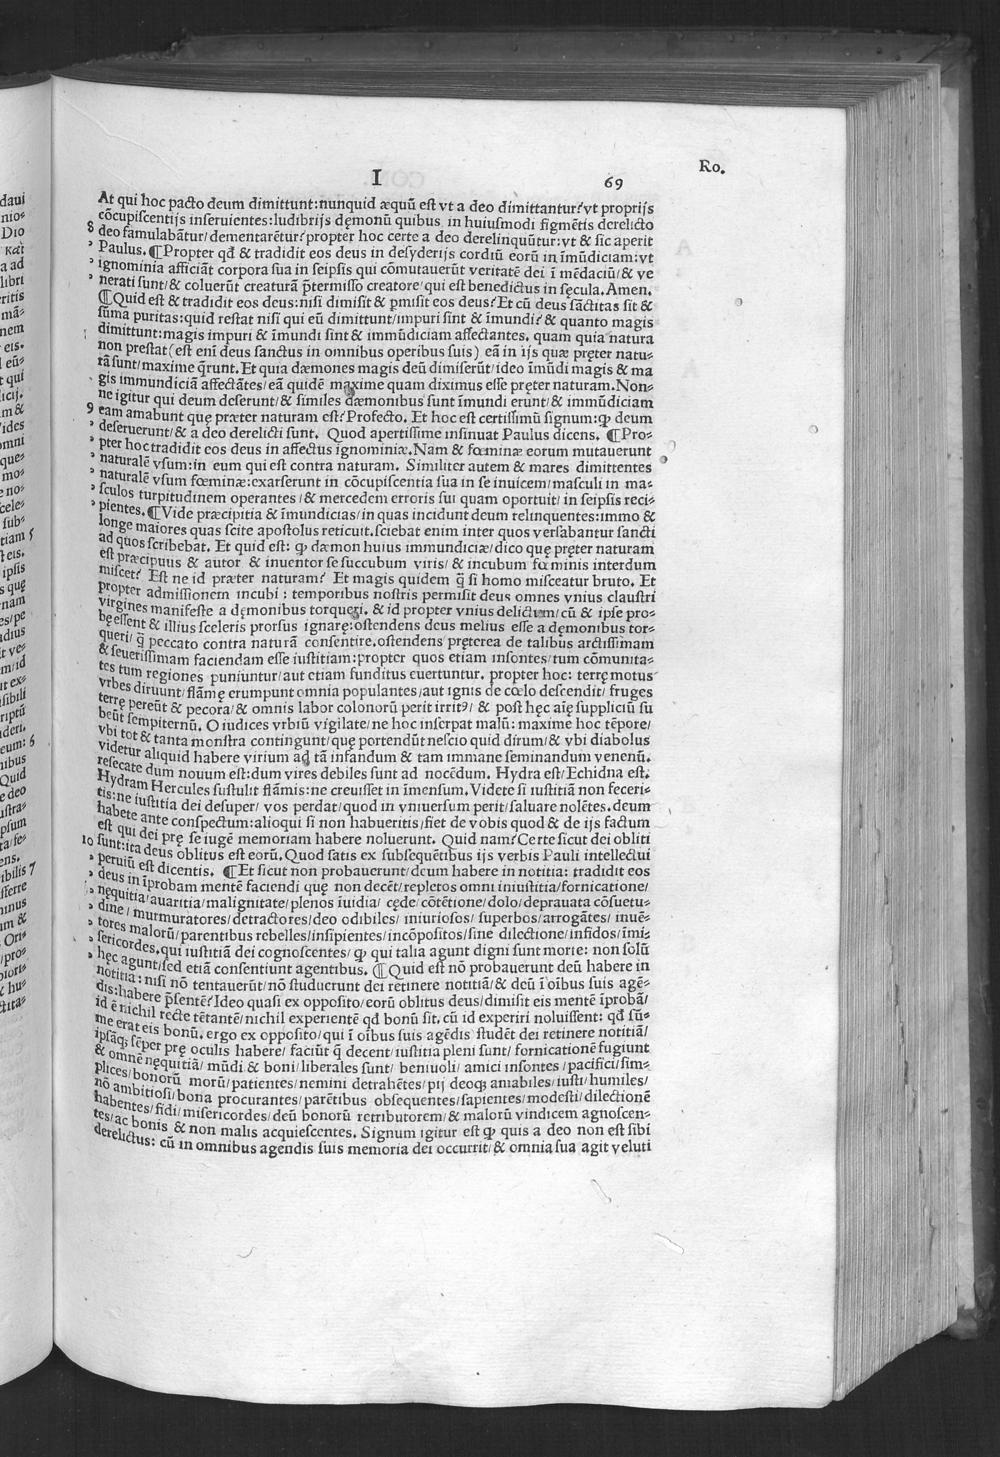 I 69 Ro.
At qui hoc pacto deum dimittunt:nunquid æquū est vt a deo dimittantur?vt proprijs
cōcupiscentijs inseruientes:ludibrijs dęmonū quibus in huiusmodi figmētis derelicto
8 deo famulabātur/dementarētur?propter hoc certe a deo derelinquūtur:vt & sic aperit
Paulus.¶Propter qd̄ & tradidit eos deus in desyderijs cordiū eorū in īmūdiciam:vt
ignominia afficiāt corpora sua in seipsis qui cōmutauerūt veritatē dei ī mēdaciū/& ve
nerati sunt/& coluerūt creaturā p̄termisso creatore/qui est benedictus in sęcula.Amen.
¶Quid est & tradidit eos deus:nisi dimisit & pmisit eos deus?Et cū deus sāctitas sit &
sūma puritas:quid restat nisi qui eū dimittunt/impuri sint & īmundi?& quanto magis
dimittunt:magis impuri & īmundi sint & immūdiciam affectantes, quam quia natura
non prestat(est enī deus sanctus in omnibus operibus suis) eā in ijs quæ pręter natu-
rā sunt/maxime q̄runt.Et quia dæmones magis deū dimiserūt/ideo īmūdi magis & ma
gis immundiciā affectātes/eā quidē maxime quam diximus esse pręter naturam.Non-
ne igitur qui deum deserunt/& similes dæmonibus sunt īmundi erunt/& immūdiciam
9 eam amabunt quę præter naturam est?Profecto. Et hoc est certissimū signum:ꝙ deum
deseruerunt/& a deo derelicti sunt. Quod apertissime insinuat Paulus dicens. ¶Pro-
pter hoc tradidit eos deus in affectus ignominiæ.Nam & fœminæ eorum mutauerunt
naturalē vsum:in eum qui est contra naturam. Similiter autem & mares dimittentes
naturalē vsum fœminæ:exarserunt in cōcupiscentia sua in se inuicem/masculi in ma-
sculos turpitudinem operantes/& mercedem erroris sui quam oportuit/in seipsis reci-
pientes.¶Vide præcipitia & īmundicias/in quas incidunt deum relinquentes:immo &
longe maiores quas scite apostolus reticuit.sciebat enim inter quos versabantur sancti
ad quos scribebat. Et quid est: ꝙ dæmon huius immundiciæ/dico quę pręter naturam
est præcipuus & autor & inuentor se succubum viris/& incubum fœminis interdum
miscet? Est ne id præter naturam? Et magis quidem q̄ si homo misceatur bruto. Et
propter admissionem incubi : temporibus nostris permisit deus omnes vnius claustri
virgines manifeste a dęmonibus torqueri. & id propter vnius delictum/cū & ipse pro-
bę essent & illius sceleris prorsus ignarę:ostendens deus melius esse a dęmonibus tor-
queri/q̄ peccato contra naturā consentire.ostendens pręterea de talibus arctissimam
& seuerissimam faciendam esse iustitiam:propter quos etiam insontes/tum cōmunita-
tes tum regiones puniuntur/aut etiam funditus euertuntur. propter hoc: terrę motus
vrbes diruunt/flāmę erumpunt omnia populantes/aut ignis de cœlo descendit/ fruges
terrę pereūt & pecora/& omnis labor colonorū perit irritꝰ/ & post hęc aię suppliciū su
beūt sempiternū. O iudices vrbiū vigilate/ne hoc inserpat malū: maxime hoc tēpore/
vbi tot & tanta monstra contingunt/quę portendūt nescio quid dirum/& vbi diabolus
videtur aliquid habere virium ad tā infandum & tam immane seminandum venenū.
resecate dum nouum est:dum vires debiles sunt ad nocēdum. Hydra est/Echidna est.
Hydram Hercules sustulit flāmis:ne creuisset in īmensum.Videte si iustitiā non feceri-
tis:ne iustitia dei desuper/ vos perdat/quod in vniuersum perit/saluare nolētes.deum
habete ante conspectum:alioqui si non habueritis/fiet de vobis quod & de ijs factum
est qui dei prę se iugē memoriam habere noluerunt. Quid nam?Certe sicut dei obliti
10 sunt:ita deus oblitus est eorū.Quod satis ex subsequētibus ijs verbis Pauli intellectui
peruiū est dicentis. ¶Et sicut non probauerunt/deum habere in notitia: tradidit eos
deus in īprobam mentē faciendi quę non decēt/repletos omni iniustitia/fornicatione/
nequitia/auaritia/malignitate/plenos īuidia/ cęde/cōtētione/dolo/deprauata cōsuetu-
dine/ murmuratores/detractores/deo odibiles/ iniuriosos/superbos/arrogātes/ inuē-
tores malorū/parentibus rebelles/insipientes/incōpositos/sine dilectione/infidos/īmi-
sericordes.qui iustitiā dei cognoscentes/ ꝙ qui talia agunt digni sunt morte: non solū
hęc agunt/sed etiā consentiunt agentibus. ¶Quid est nō probauerunt deū habere in
notitia: nisi nō tentauerūt/nō studuerunt dei retinere notitiā/& deū ī oībus suis agē-
dis:habere p̄sentē?Ideo quasi ex opposito/eorū oblitus deus/dimisit eis mentē īprobā/
id ē nichil recte tētantē/nichil experientē qd̄ bonū sit.cū id experiri noluissent: qd̄ sū-
me erat eis bonū. ergo ex opposito/qui ī oībus suis agēdis studēt dei retinere notitiā/
ipsāqȝ sēper prę oculis habere/ faciūt q̄ decent/iustitia pleni sunt/ fornicationē fugiunt
& omnē nequitiā/ mūdi & boni/liberales sunt/ beniuoli/ amici insontes/pacifici/sim-
plices/bonorū morū/patientes/nemini detrahētes/pij deoqȝ amabiles/iusti/humiles/
nō ambitiosi/bona procurantes/parētibus obsequentes/sapientes/modesti/dilectionē
habentes/fidi/misericordes/deū bonorū retributorem/& malorū vindicem agnoscen-
tes/ac bonis & non malis acquiescentes. Signum igitur est ꝙ quis a deo non est sibi
derelictus: cū in omnibus agendis suis memoria dei occurrit/& omnia sua agit veluti